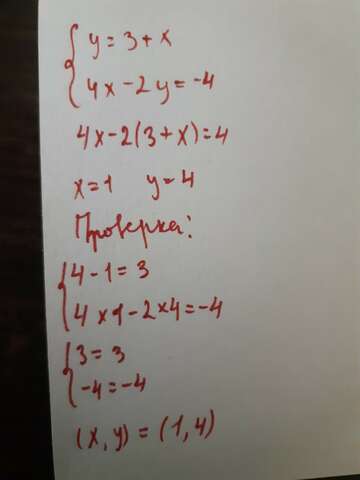 y = 3 + x
4x - 2y = -4
4x - 2(3 + x) = 4
x = 1 y = 4
Проверка:
4 - 1 = 3
4 × 1 - 2 × 4 = -4
3 = 3
-4 = -4
(x, y) = (1, 4)